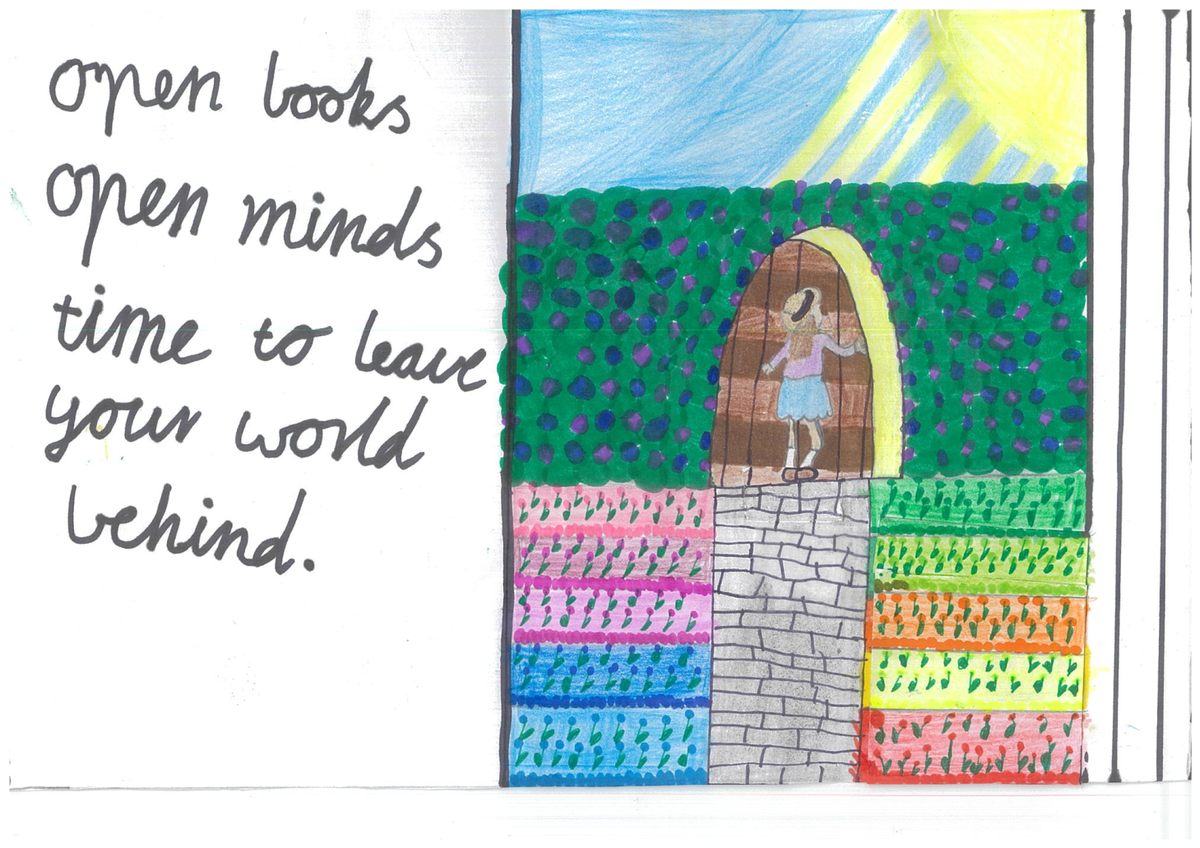 open books
open minds
time to leave
your world
behind.